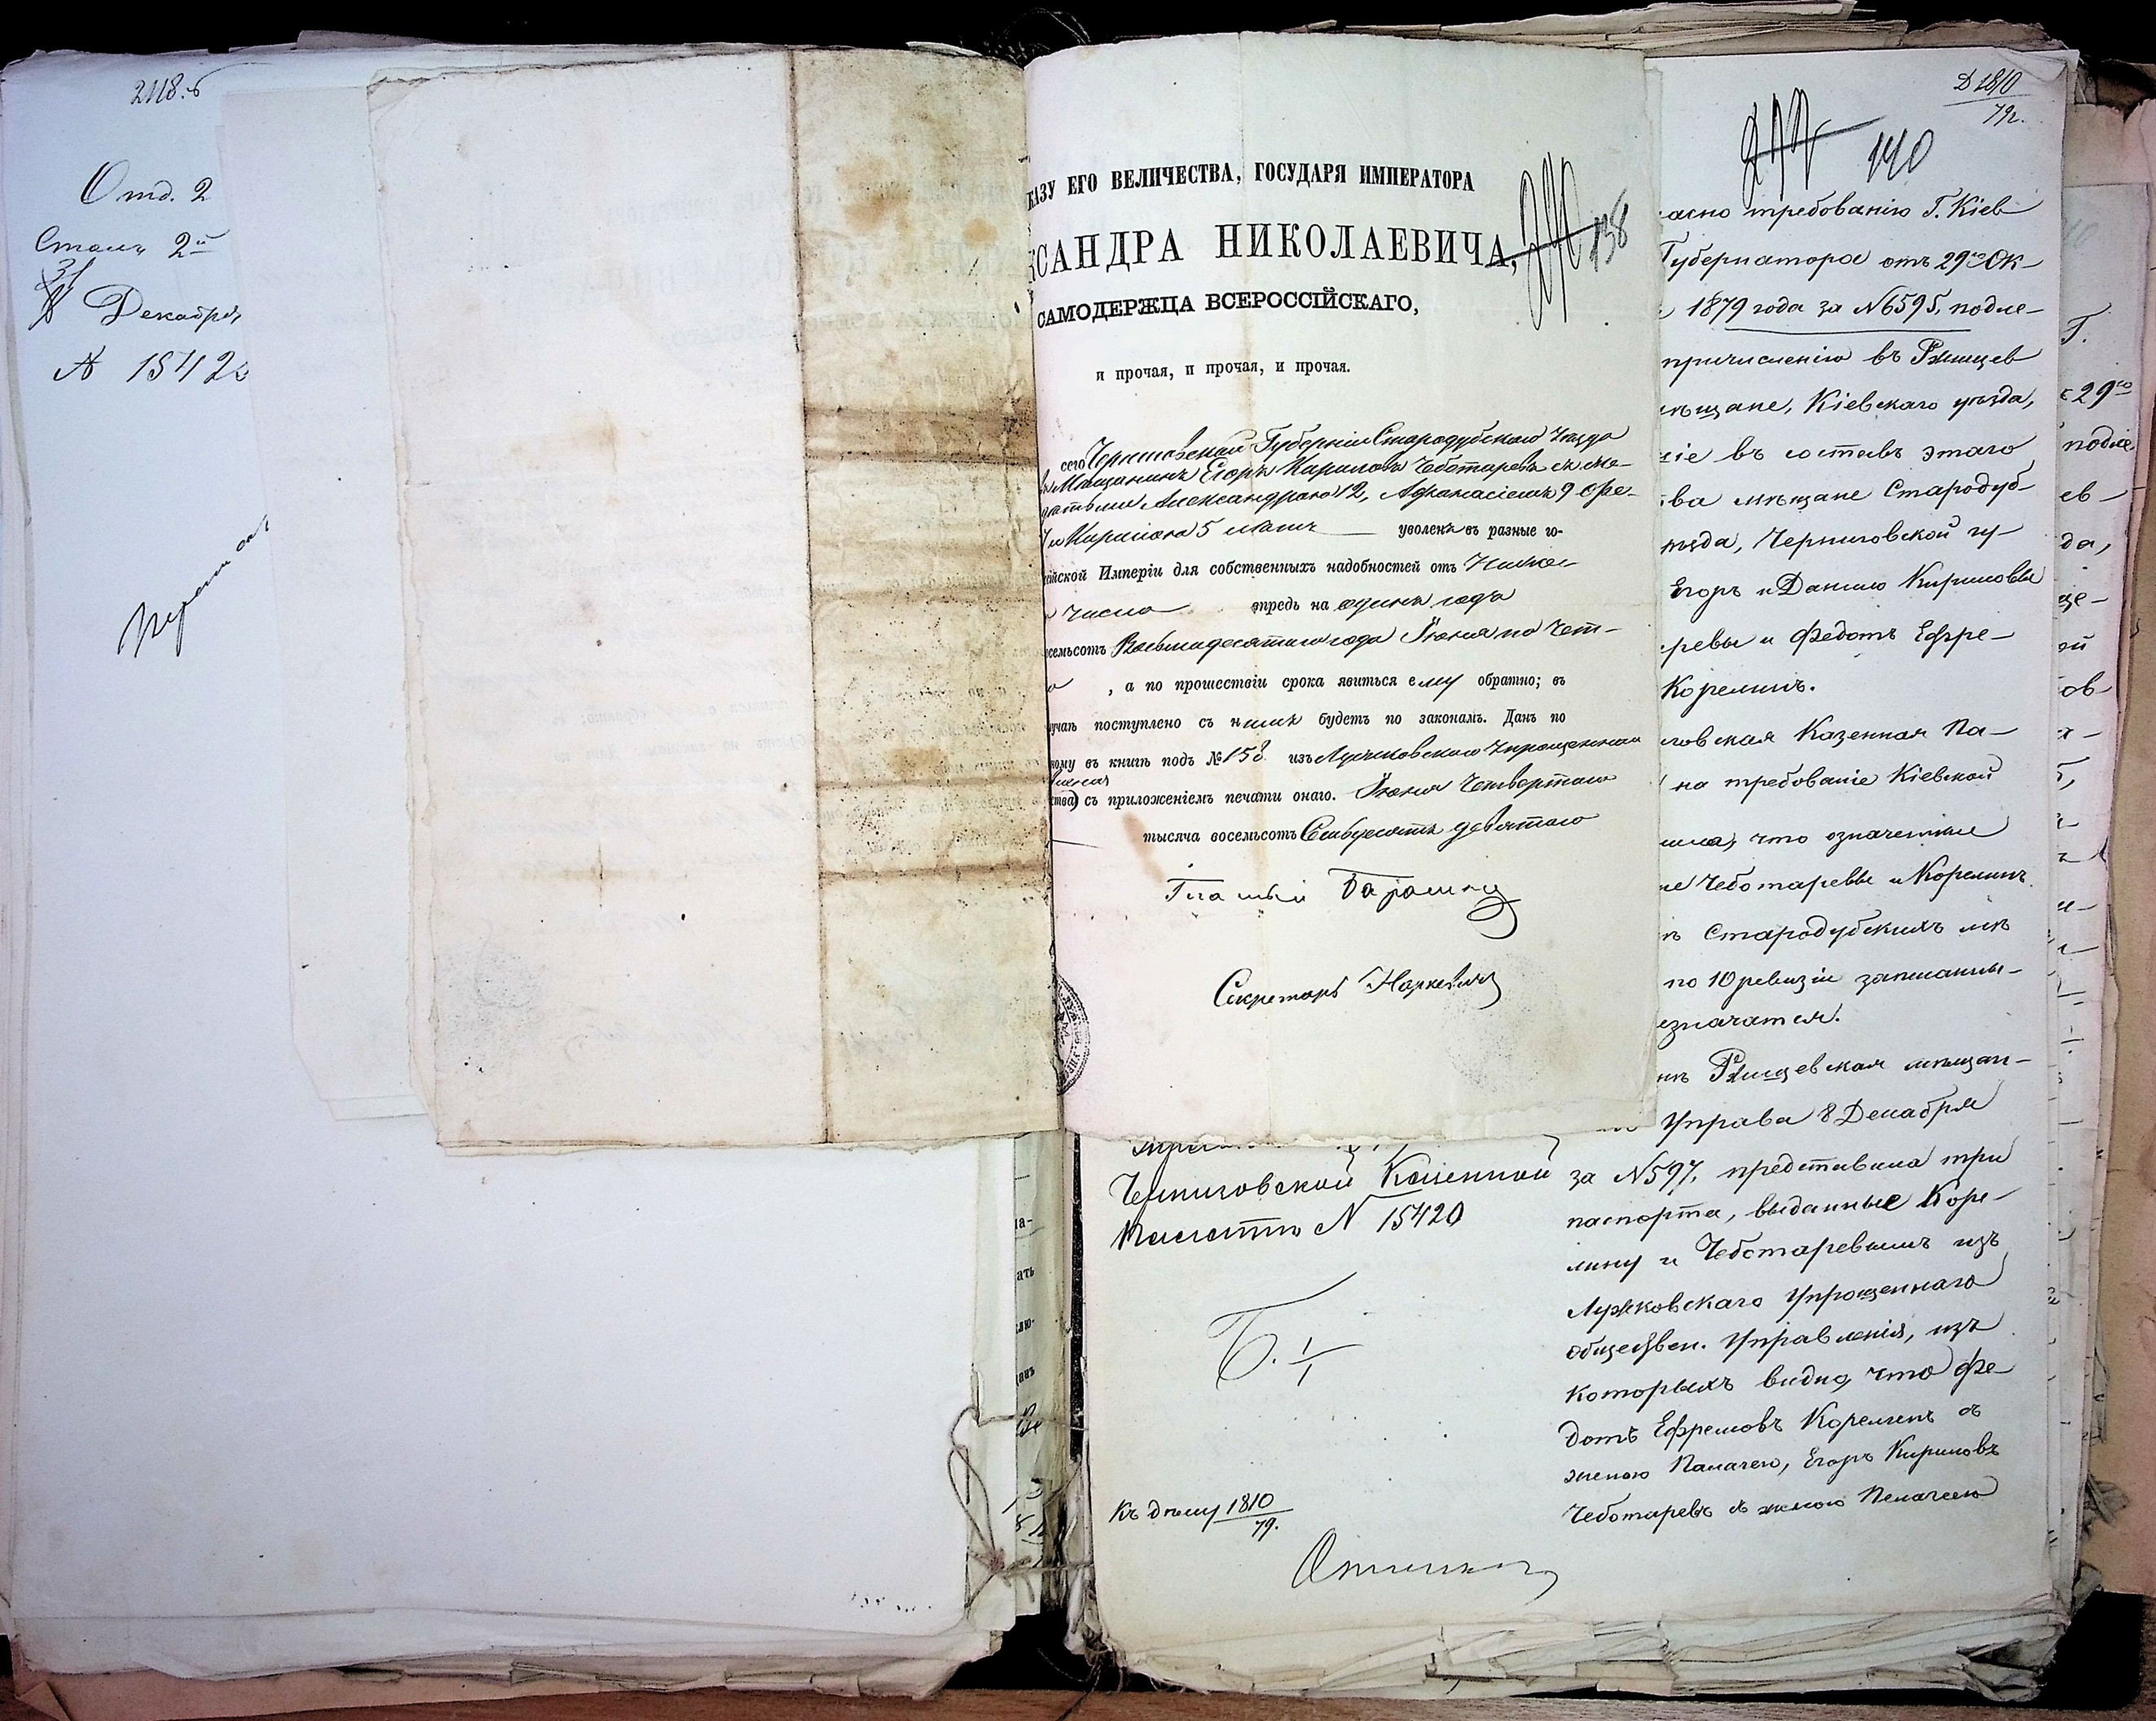 2118.б
Отд. 2
Столъ 2й
31
Декабря
№ 15420
КАЗУ ЕГО ВЕЛИЧЕСТВА, ГОСУДАРЯ ИМПЕРАТОРА
КСАНДРА НИКОЛАЕВИЧА,
138
САМОДЕРЖЦА ВСЕРОССІЙСКАГО,
и прочая, и прочая, и прочая.
сего Черниговской Губерніи Стародубскаго Уѣзда
Мѣщанинъ Егоръ Кириловъ Чеботаревъ съ
Александромъ 12, Афанасіемъ 9
Кириломъ 5 лѣтъ уволенъ въ разные го-
сійской Имперіи для собственныхъ надобностей отъ ниже
числа впредь на одинъ годъ
осемьсотъ Восьмидесятаго года Іюня по Чет-
, а по прошествіи срока явиться ему обратно; въ
лучаѣ поступлено съ нимъ будетъ по законамъ. Данъ по
ному въ книгѣ подъ № 158 изъ Лужковскаго Упрощеннаго
ства) съ приложеніемъ печати онаго. Іюня Четвертаго
тысяча восемьсотъ Семьдесятъ девятаго
Секретарь Наркевичъ
Д 1810
79г.
140
ласно требованію Г. Кіев
Губернатора отъ 29го Ок-
1879 года за №6595, подле-
причисленію въ Ржищев
мѣщане, Кіевскаго уѣзда,
сіе въ составъ этаго
тва мѣщане Стародуб-
уѣзда, Черниговской гу-
Егоръ и Данило Кириловы
аревы и Федотъ Ефре-
Корелинъ.
говская Казенная Па-
на требованіе Кіевской
что означенные
не Чеботаревы и Корелинъ
ъ Стародубскихъ мѣ
по 10 ревизіи записанны-
незначатся.
Ржищевская мѣщан-
Управа 8 Декабря
за №597, представила три
паспорта, выданные Коре-
лину и Чеботаревымъ изъ
Лужковскаго Упрощеннаго
обществен. Управленія, изъ
которыхъ видно, что Фе-
дотъ Ефремовъ Корелинъ съ
женою Палагею, Егоръ Кириловъ
Чеботаревъ съ женою Пелагеею
Черниговской Казенной
Палатѣ № 15420
Къ дѣлу 1810
79.
Г.
29го
подле
ев-
да,